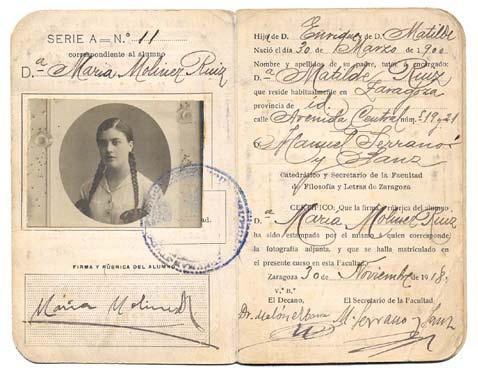 SERIE A - N.º 11
correspondiente al alumno
D.ª María Moliner Ruiz
FIRMA Y RÚBRICA DEL ALUMNO
María Moliner
Hijo de D. Enrique y de D. Matilde
Nació el día 30 de Marzo de 1900
Nombre y apellidos de su padre, tutor ó encargado:
D.ª Matilde Ruiz
que reside habitualmente en Zaragoza
provincia de id.
calle Avenida Central núm. 519, 21
Manuel Serrano
y Sanz
Catedrático y Secretario de la Facultad
de Filosofía y Letras de Zaragoza
CERTIFICO: Que la firma y rúbrica del alumno
D.ª María Moliner Ruiz
ha sido estampada por el mismo á quien corresponde
la fotografía adjunta, y que se halla matriculado en
el presente curso en esta Facultad.
Zaragoza 30 de Noviembre de 1918
V.º B.º
El Decano, El Secretario de la Facultad,
M. Serrano y Sanz